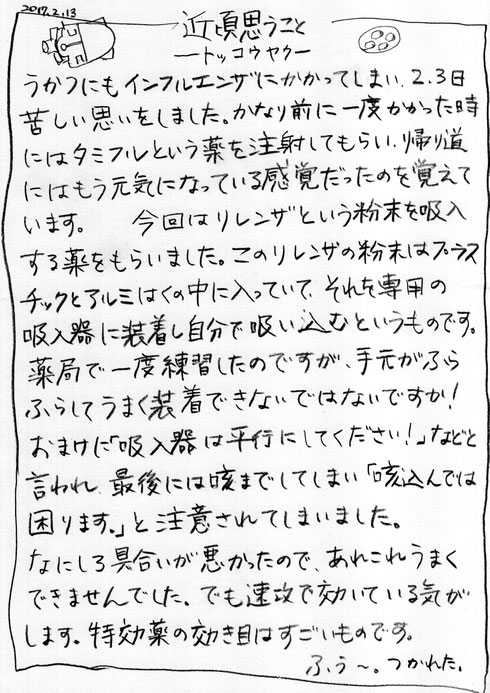 2017.2.13
近頃思うこと
―トッコウヤク―
うかつにもインフルエンザにかかってしまい、2.3日
苦しい思いをしました。かなり前に一度かかった時
にはタミフルという薬を注射してもらい、帰り道
にはもう元気になっている感覚だったのを覚えて
います。 今回はリレンザという粉末を吸入
する薬をもらいました。このリレンザの粉末はプラス
チックとアルミはくの中に入っていて、それを専用の
吸入器に装着し自分で吸い込むというものです。
薬局で一度練習したのですが、手元がふら
ふらしてうまく装着できないではないですか!
おまけに「吸入器は平行にしてください!」などと
言われ、最後には咳までしてしまい「咳込んでは
困ります。」と注意されてしまいました。
なにしろ具合いが悪かったので、あれこれうまく
できませんでした。でも速攻で効いている気が
します。特効薬の効き目はすごいものです。
ふぅ〜。つかれた。